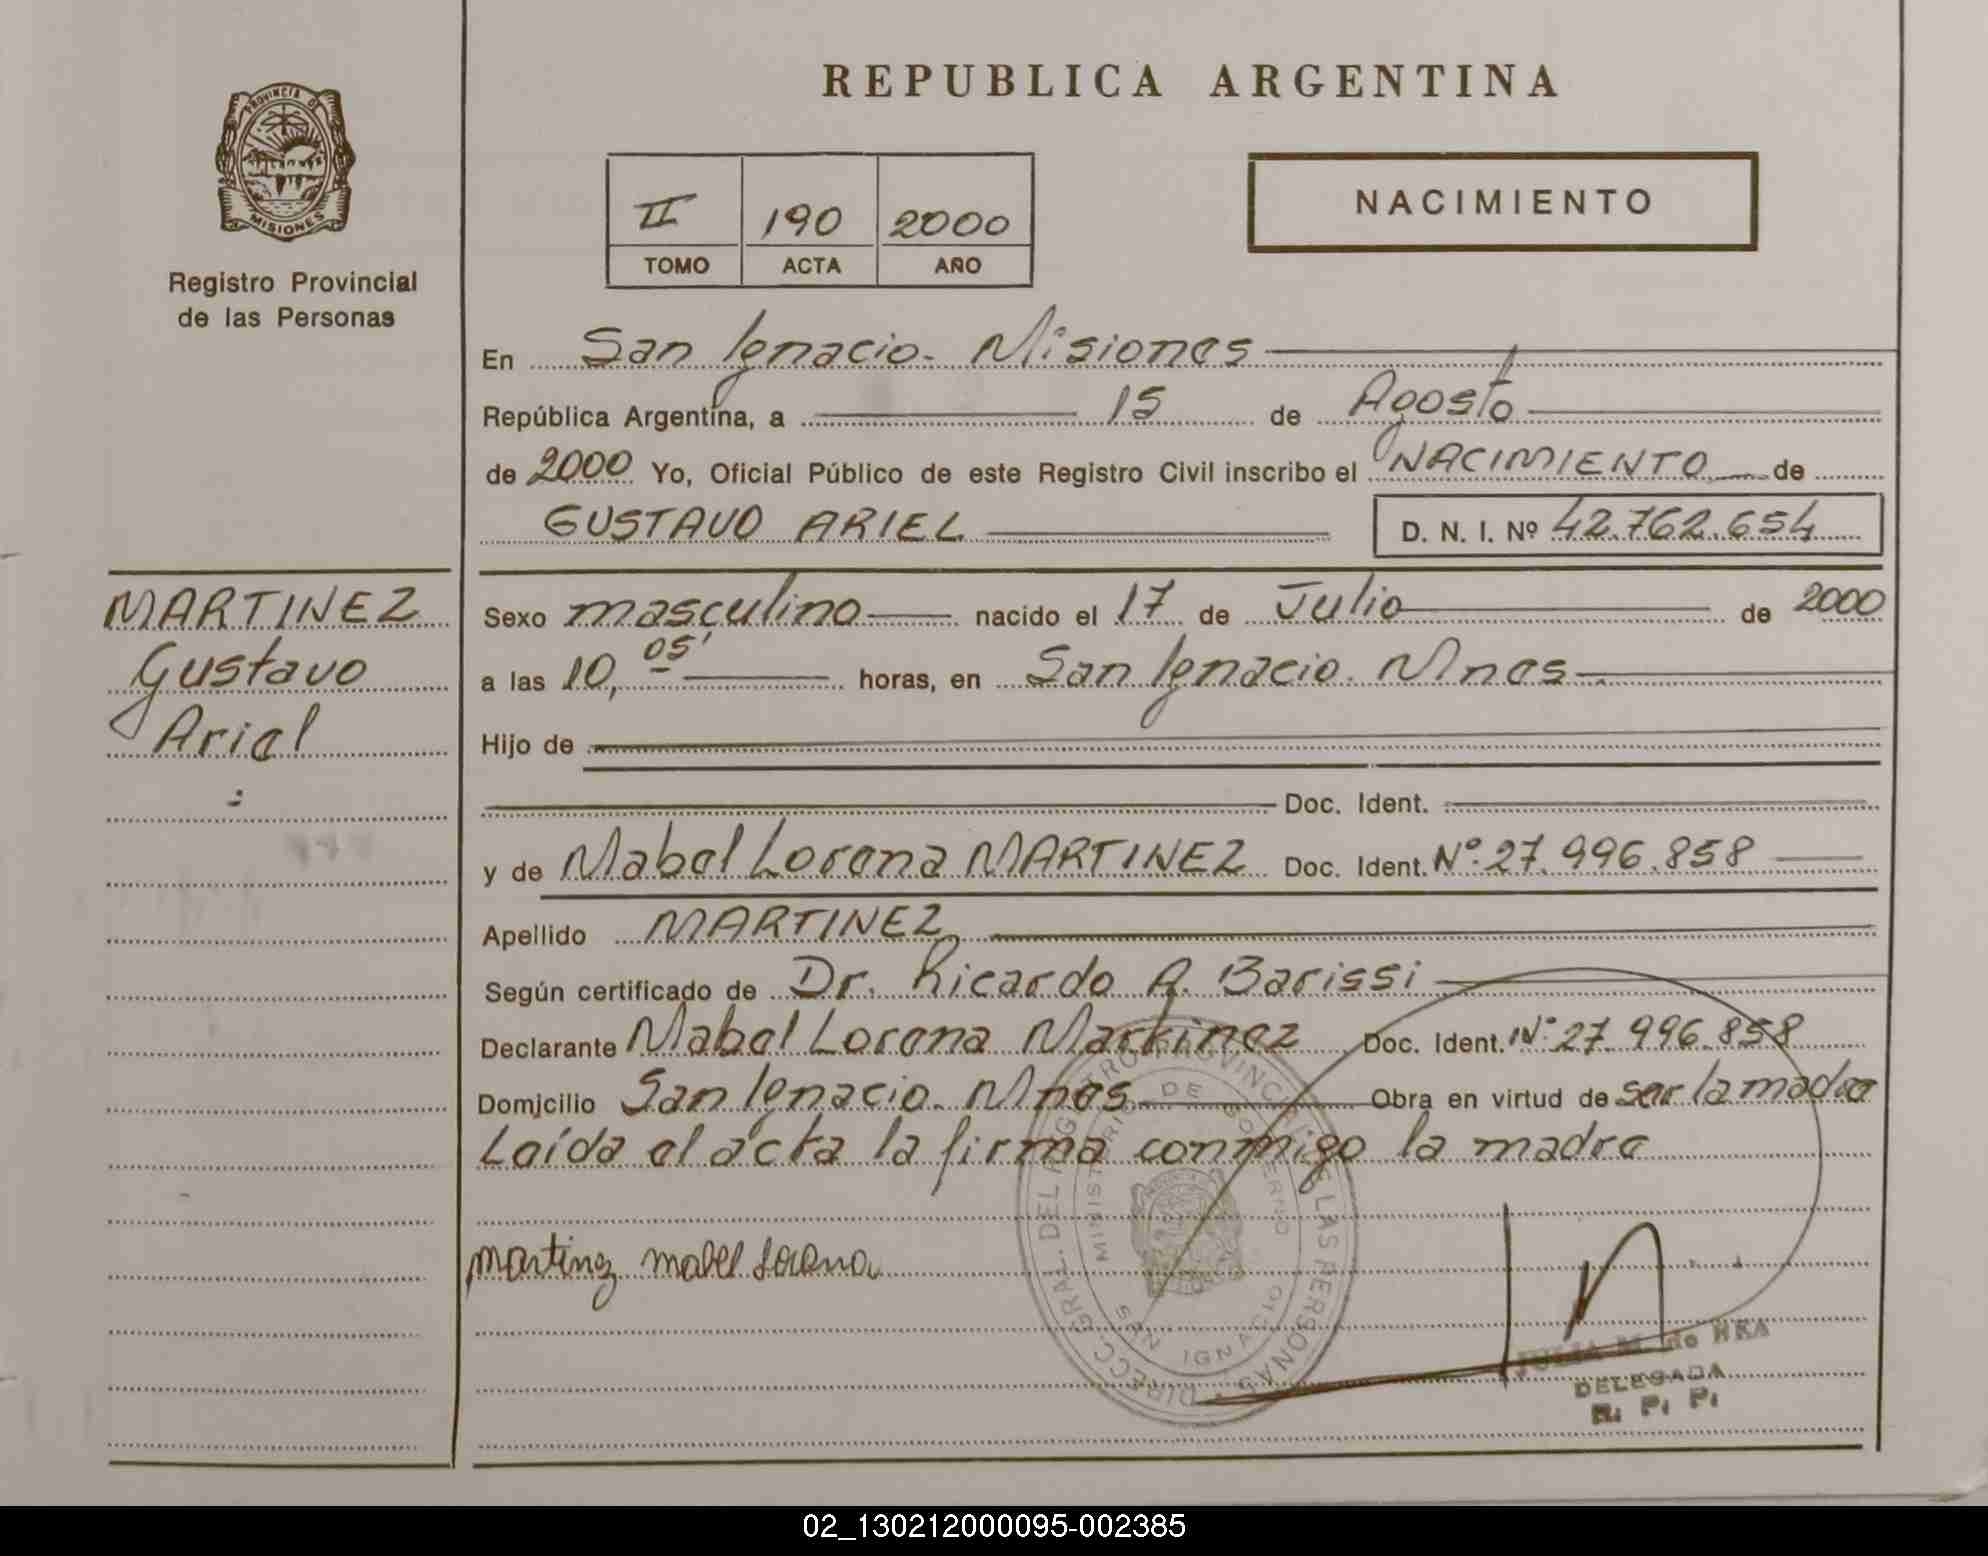 PROVINCIA DE
MISIONES
Registro Provincial
de las Personas
REPUBLICA ARGENTINA
II 190 2000
TOMO ACTA AÑO
NACIMIENTO
En San Ignacio. Misiones
República Argentina, a 15 de Agosto
de 2000 Yo, Oficial Público de este Registro Civil inscribo el NACIMIENTO de
GUSTAVO ARIEL D. N. I. Nº 42.762.654
MARTINEZ
Gustavo
Ariel
Sexo masculino nacido el 17 de Julio de 2000
a las 10,05' horas, en San Ignacio. Mnes
Hijo de
Doc. Ident.
y de Mabel Lorena MARTINEZ Doc. Ident. Nº 27.996.858
Apellido MARTINEZ
Según certificado de Dr. Ricardo A. Barissi
Declarante Mabel Lorena Martinez Doc. Ident. Nº 27.996.858
Domicilio San Ignacio. Mnes Obra en virtud de ser la madre
Leída el acta la firma conmigo la madre
martinez mabel Lorena
DIRECC. GRAL. DEL REGISTRO PROVINCIAL DE LAS PERSONAS
MINISTERIO DE GOBIERNO
SAN IGNACIO
JULIA M. de
DELEGADA
R. P. P.
02_130212000095-002385